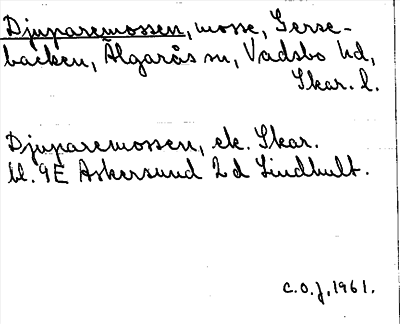 Djuparemossen, mosse, Gerse-
backen, Älgarås sn, Vadsbo hd,
Skar. l.
Djuparemossen, ek. Skar.
bl. 9E Askersund 2d Lindhult.
C.O.J. 1961.